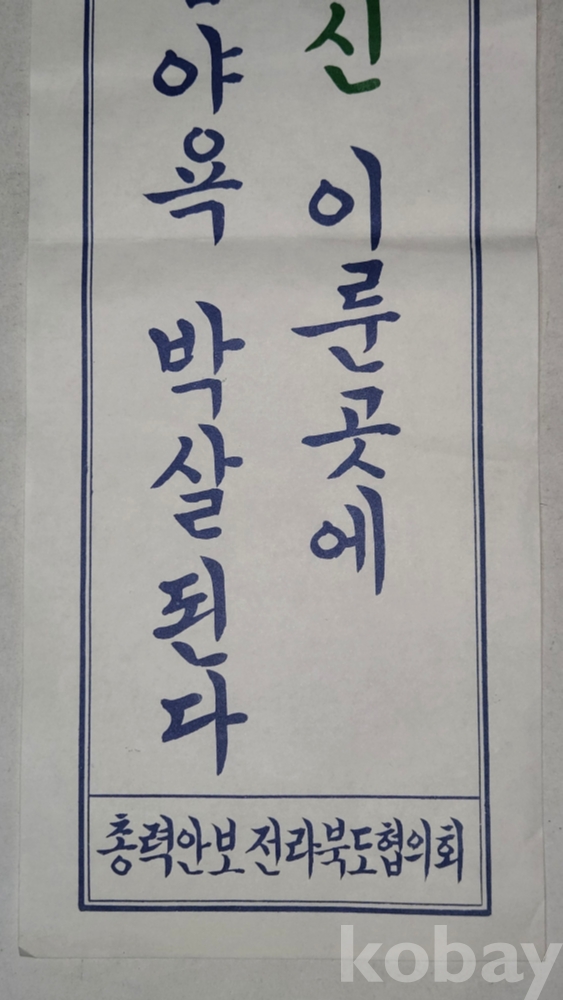 신 이룬곳에
야욕 박살된다
총력안보전라북도협의회
kobay